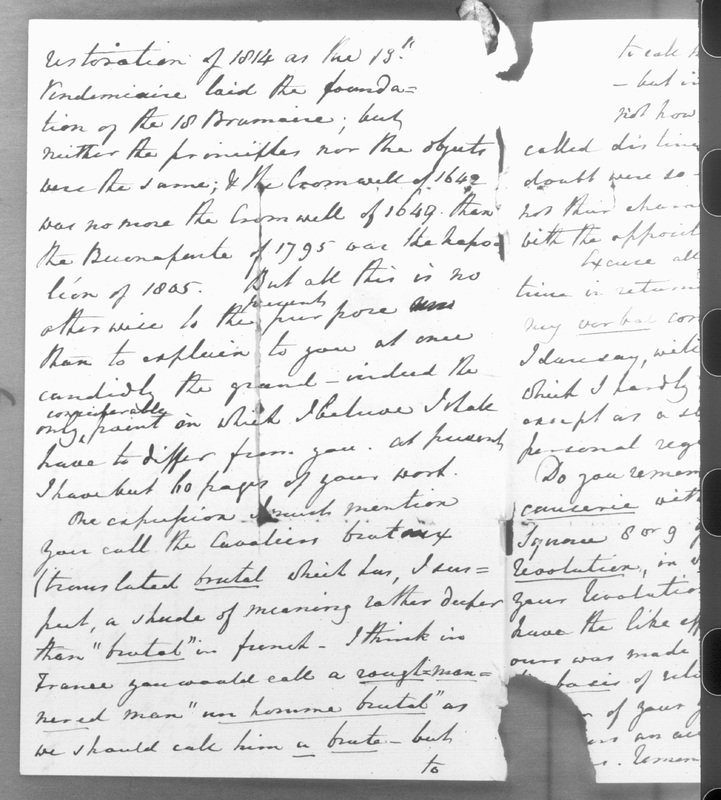 restoration of 1814 as the 13th
Vendemiaire laid the founda=
tion of the 18 Brumaire; but
neither the principles nor the objects
were the same; & the Cromwell of 1642
was no more the Cromwell of 1649 than
the Buonaparte of 1795 was the Napo-
léon of 1805. But all this is no
otherwise to the present purpose
than to explain to you at once
candidly the grand – indeed the
only considerable point in which I believe I shall
have to differ from you. At present
I have but 60 pages of your work.
One expression I must mention
you call the Cavaliers brutaux
(translated brutal which has, I sus=
pect, a shade of meaning rather deeper
than "brutal" in french – I think in
France you would call a rough=man=
nered man "un homme brutal" as
we should call him a brute – but
to
to call
– but in
not how
called distin
doubt were so
not their
with the opposit
Excuse all
time in return
my verbal
I dare say, will
which I hardly
except as a
personal reg
Do you remem
causerie with
I quote 8 or 9
Revolution, in
your Revolution
have the like
ours was made
basis of
of your
an